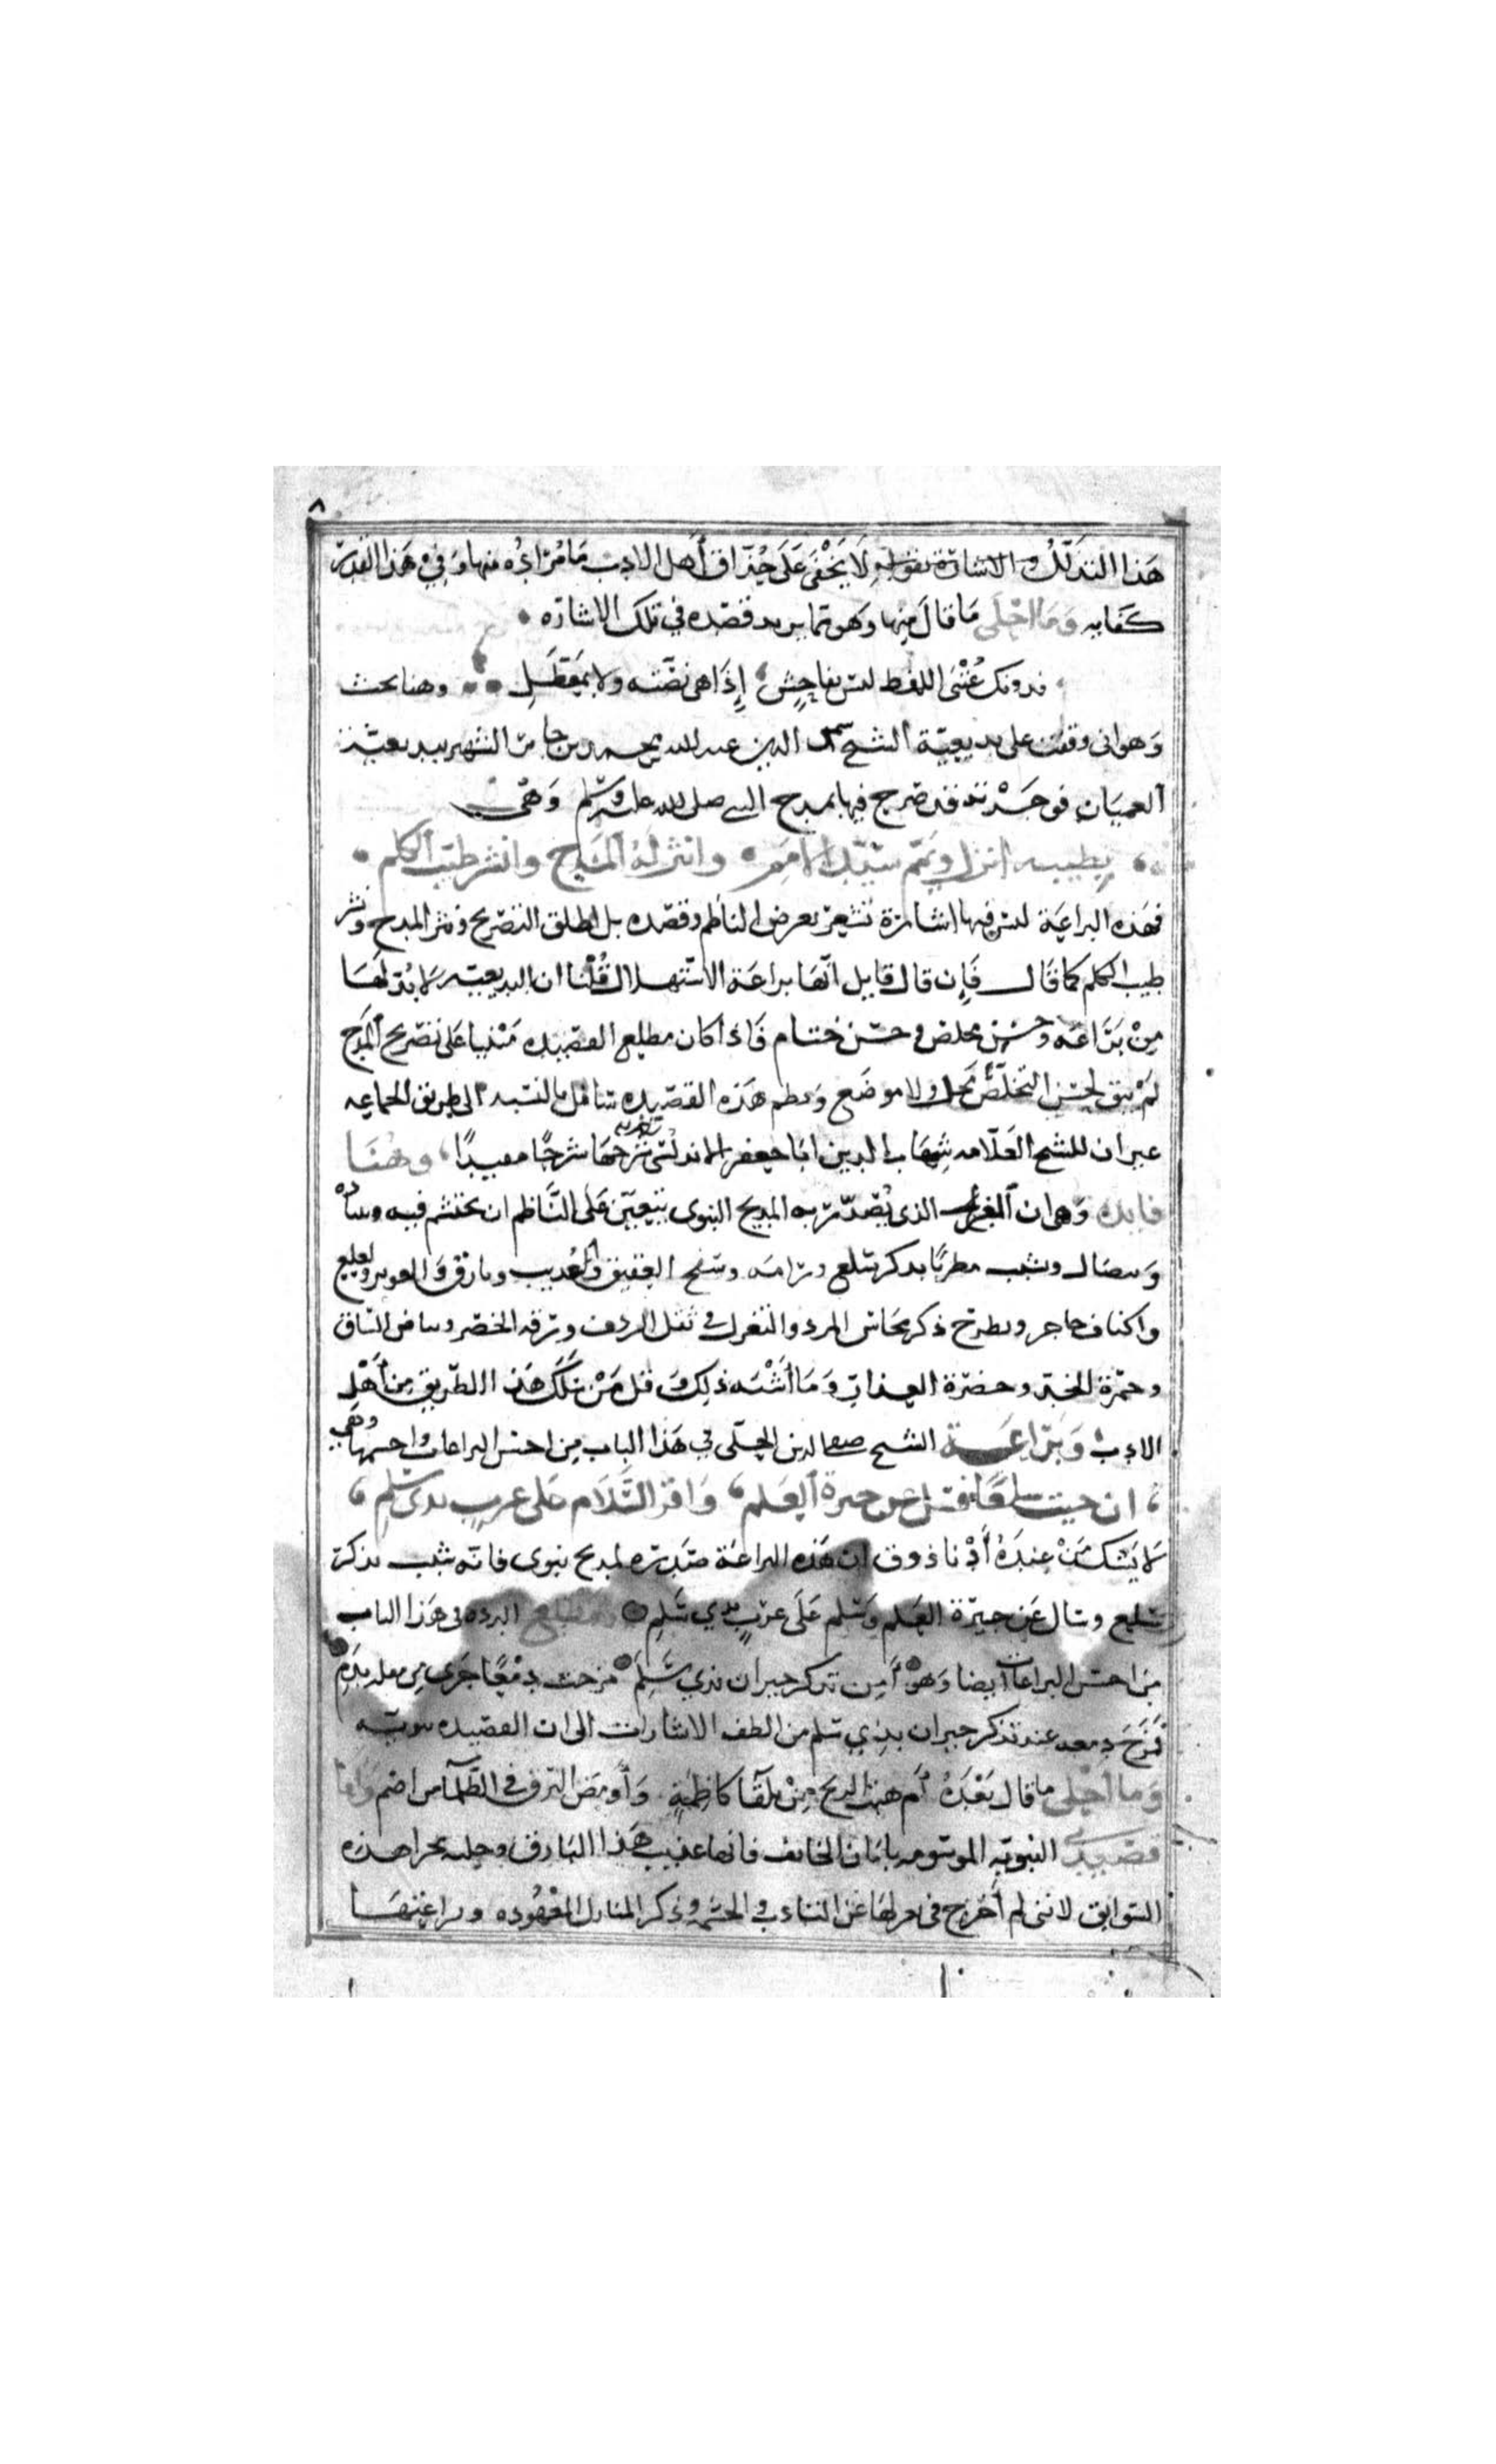 ٨
هذا التذلل والاشارة بقوله لا يخفى على حذاق أهل الادب ما مراده منها وفي هذا القدر
كفايه وما احلى ما قال منها وهو مما يريد قصده في تلك الاشاره
فدونك عنى اللفظ ليس بفاحش إذا هي نصته ولا بمعطل وهنا بحث
وهو اني وقفت على بديعية الشيخ شمس الدين عبد الله محمد بن جابر الشهير ببديعية
العميان فوجدته قد صرح فيها بمدح النبي صلى الله عليه وسلم وهي
بطيبه انزل ويمم سيد الامم وانثر له المدح وانشر طيب الكلم
فهذه البراعة ليس فيها اشارة تشعر بعرض الناظم وقصده بل اطلق التصريح ونثر المدح ونشر
طيب الكلم كما قال فإن قال قايل انها براعة الاستهلال قلنا ان البديعيه لا بد لها
من براعه وحسن مخلص وحسن ختام فاذا كان مطلع القصيده مبنيا على تصريح المدح
لم يبق لحسن التخلص محل ولا موضع ونظم هذه القصيده سافل بالنسبه الى طريق الجماعه
غير ان للشيخ العلامه شهاب الدين ابا جعفر الاندلسي شرحها شرحا مفيدا وهنا
فايده وهي ان الغزل الذي يصدر به المديح النبوي يتعين على الناظم ان يحتشم فيه ويتأدب
ويتضال ويشبب مطربا بذكر سلع ورامه وسفح العقيق والعذيب وبارق والغوير ولعلع
واكناف حاجر ويطرح ذكر محاسن المرد والتغزل في ثقل الردف ورقه الخصر وبياض الساق
وحمرة الخد وخضرة العذار وما أشبه ذلك وقل من سلك هذا الطريق من أهل
الادب وبراعة الشيخ صفي الدين الحلي في هذا الباب من احسن البراعات واحشمها وهي
ان جيت سلعا فسل عن جيرة العلم واقر السلام على عرب بذي سلم
لا يشك من عنده أدنا ذوق ان هذه البراعة صدرت لمديح نبوي فانه شبب بذكر
سلع وسال عن جيرة العلم وسلم على عرب بذي سلم ومطلع البرده في هذا الباب
من احسن البراعات أيضا وهو أمن تذكر جيران بذي سلم مزجت دمعا جرى من مقلة بدم
فمزج دمعه عند تذكر جيران بذي سلم من الطف الاشارات الى ان القصيده نبويه
وما أحلى ما قال بعده أم هبت الريح من تلقا كاظمة وأومض البرق في الظلمآ من اضم واما
قصيدتي النبويه الموسومه بامان الخايف فانها عذيب هذا البارق وحلبه مجرا هذه
السوابق لانني لم أخرج في غزلها عن التادب والحشمه وذكر المنازل المعهوده وبراعتها